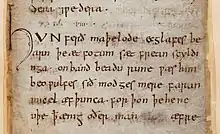 dena ⁊ ƿedera .
HVN ferð maþelode ecglafes
bearn þe æt fotum sæt frean scyldin
ga . on band beadu rune ƿæs him
beoƿulfes sið modges mere faran
micel æf þunca for þon þe he ne
uþe ꝥ ænig oðer man æfre